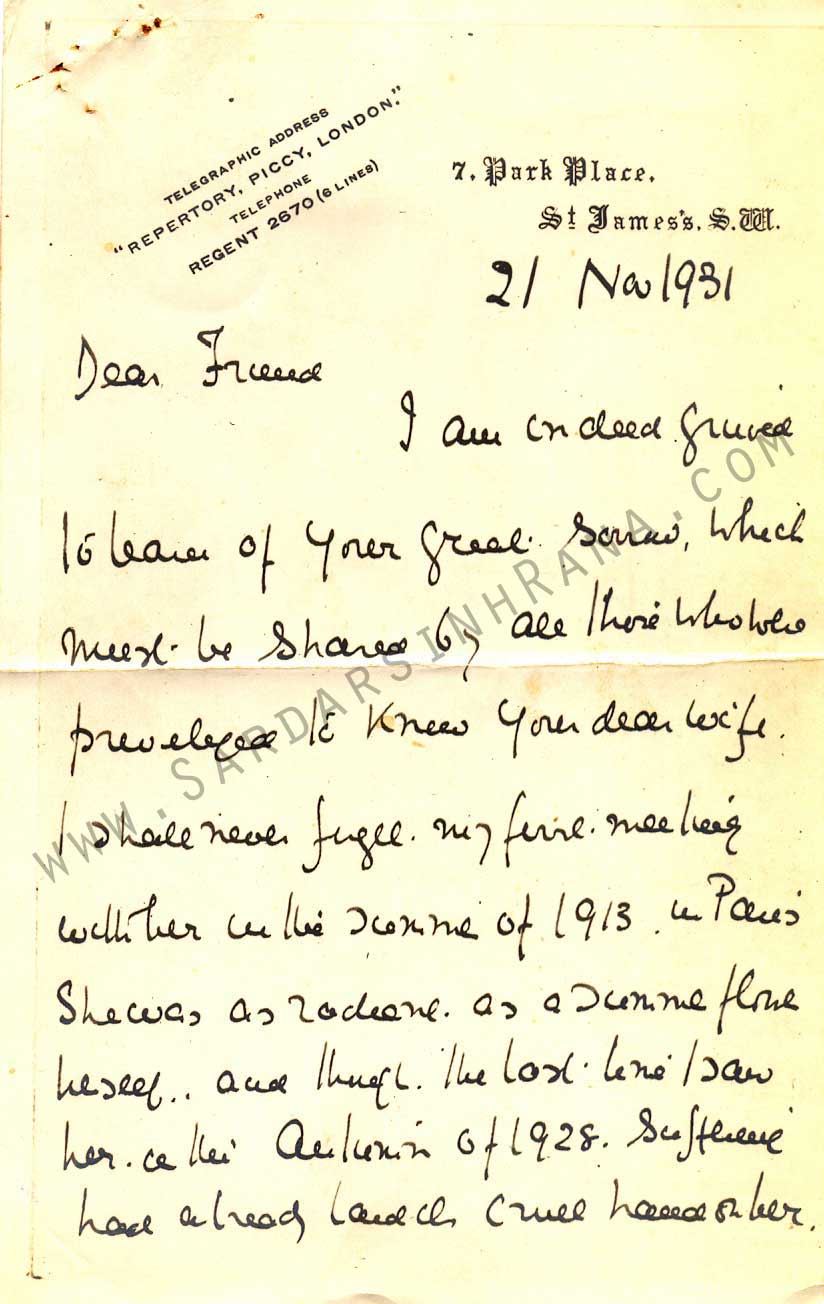 TELEGRAPHIC ADDRESS
"REPERTORY, PICCY, LONDON."
TELEPHONE
REGENT 2670 (6 LINES)
7, Park Place,
St James's, S.W.
21 Nov 1931
Dear Friend
I am indeed grieved
to learn of your great sorrow, which
must be shared by all those who were
privileged to know your dear wife.
I shall never forget my first meeting
with her in the summer of 1913 in Paris
She was as radiant as a summer flower
herself.. and though the last time I saw
her in the Autumn of 1928. Suffering
had already laid its cruel hand on her.
WWW.SARDARSINHRANA.COM